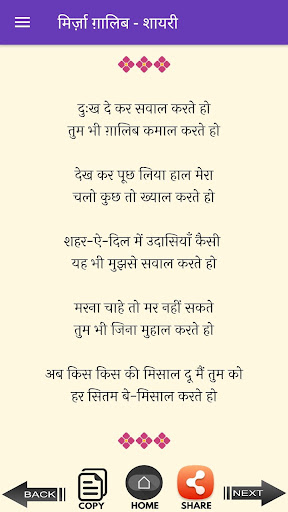 मिर्ज़ा ग़ालिब - शायरी
दुःख दे कर सवाल करते हो
तुम भी ग़ालिब कमाल करते हो
देख कर पूछ लिया हाल मेरा
चलो कुछ तो ख्याल करते हो
शहर-ऐ-दिल में उदासियाँ कैसी
यह भी मुझसे सवाल करते हो
मरना चाहे तो मर नहीं सकते
तुम भी जिना मुहाल करते हो
अब किस किस की मिसाल दू मैं तुम को
हर सितम बे-मिसाल करते हो
BACK COPY HOME SHARE NEXT